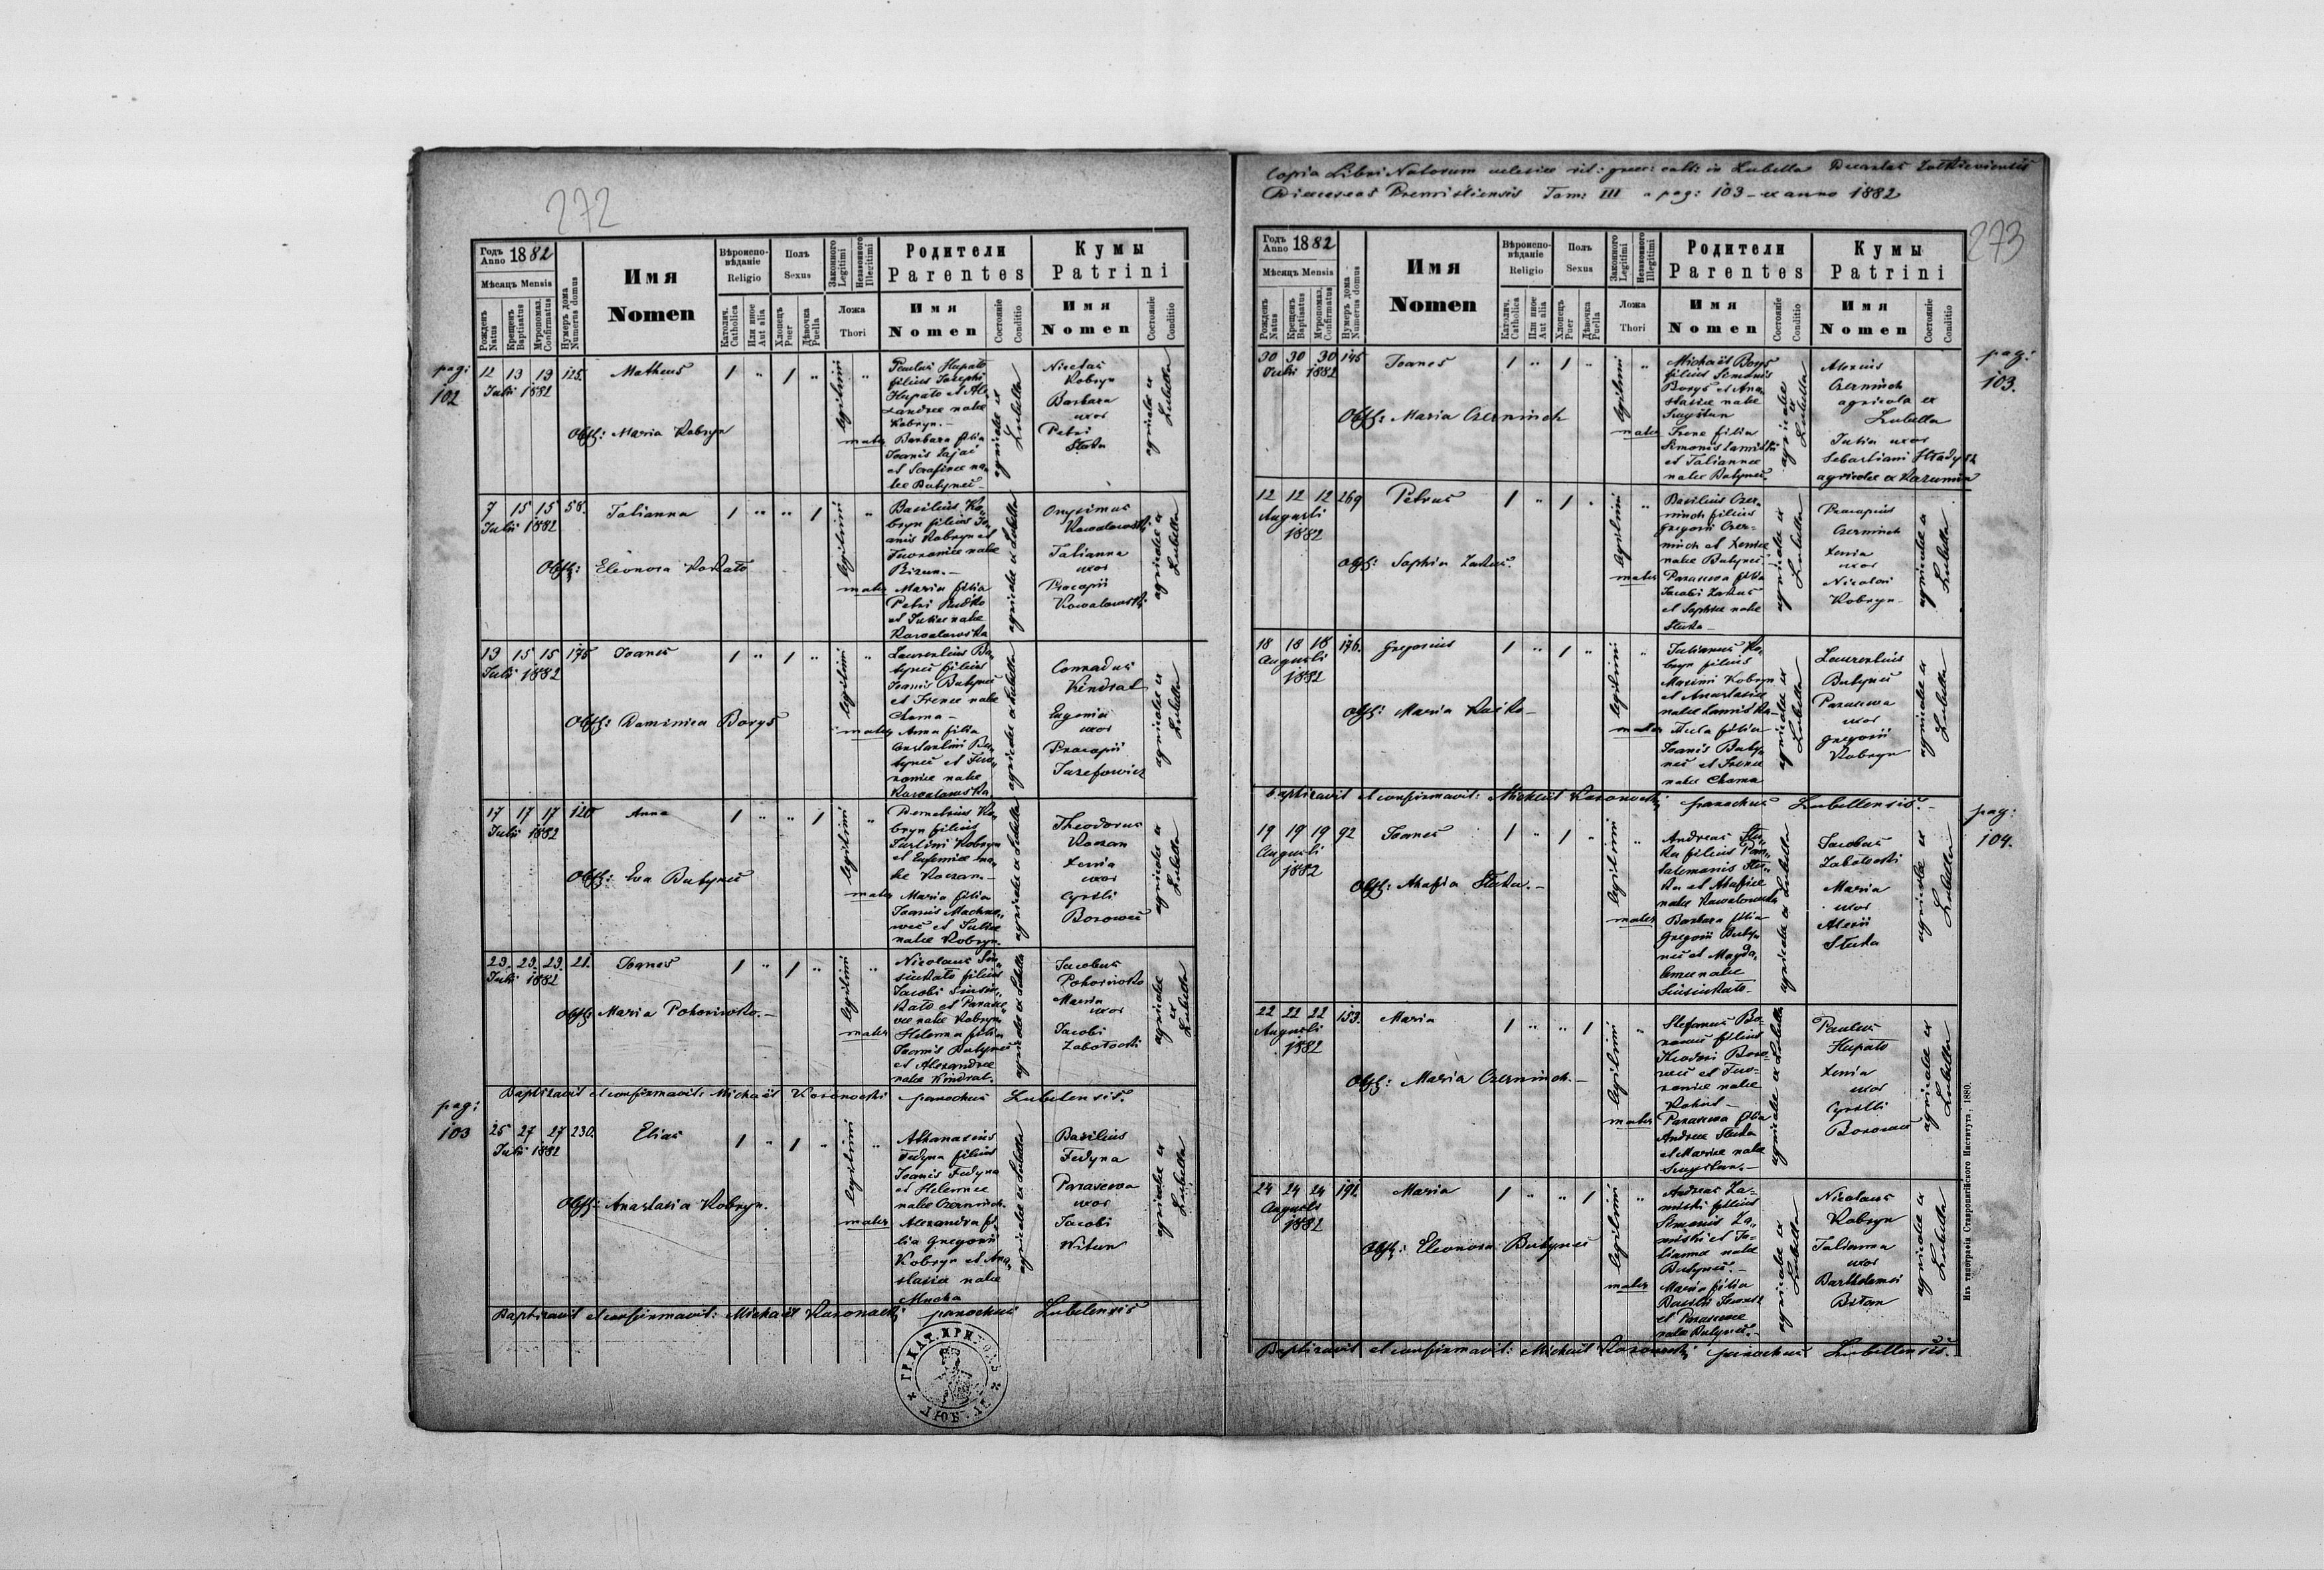 272
Годъ Anno 1882
Мѣсяцъ Mensis
Рожденъ Natus
Крещенъ Baptisatus
Мѵропомаз. Confirmatus
Нумеръ дома Numerus domus
Имя
Nomen
Вѣроиспо-
вѣданіе
Religio
Католич. Catholica
Или иное Aut alia
Полъ
Sexus
Хлопецъ Puer
Дѣвочка Puella
Законного Legitimi
Незаконного Illegitimi
Ложа
Thori
Родители
Parentes
Имя
Nomen
Состояніе
Conditio
Кумы
Patrini
Имя
Nomen
Состояніе
Conditio
pag:
102
12 13 13 125.
Julii 1882
Matheus
Obst: Maria Kobryn
legitimi
mater
Paulus Hupało
filius Josephi
Hupało et Ale-
xandrae natae
Kobryn.
Barbara filia
Joanis Zajac
et Serafinae na-
tae Butyneć
agricolae ex Lubella
Nicetas
Kobryn
Barbara
uxor
Petri
Słuka
agricolae ex Lubella
7 15 15 58.
Julii 1882
Tatianna
Obst: Eleonora Koskato
legitimi
mater
Basilius Ko-
bryn filius Jo-
anis Kobryn et
Fevroniae natae
Bizun.
Maria filia
Petri Rudko
et Juliae natae
Kowalowska
agricolae ex Lubella
Onysimus
Kowalowski
Tatianna
uxor
Procopii
Kowalowski
agricolae ex Lubella
13 15 15 175
Julii 1882
Joanes
Obst: Dominica Borys
legitimi
mater
Laurentius Bu-
tyneć filius
Joanis Butyneć
et Irenae natae
Chama
Anna filia
Constantini Bu-
tyneć et Fev-
roniae natae
Kowalowska
agricolae ex Lubella
Conradus
Kindrat
Eugenia
uxor
Procopii
Juzefowicz
agricolae ex Lubella
17 17 17 120
Julii 1882
Anna
Obst: Eva Butyneć
legitimi
mater
Demetrius Ko-
bryn filius
Justini Kobryn
et Eufemiae na-
tae Koczan.
Maria filia
Joanis Machno-
weć et Juliae
natae Kobryn.
agricolae ex Lubella
Theodorus
Koczan
Xenia
uxor
Cyrilli
Boroweć
agricolae ex Lubella
23. 23. 23. 21.
Julii 1882
Joanes
Obst: Maria Pohoriwsko.
legitimi
mater
Jacobi
et Parasce-
vae natae Kobryn
Helenna filia
Joanis Butyneć
et Alexandrae
natae Kindrat.
agricolae ex Lubella
Jacobus
Pohoriwsko
Maria
uxor
Jacobi
Zabołocki
agricolae ex Lubella
Baptizavit et confirmavit: Michaël Koronocki parochus Lubelensis.
pag:
103
25 27 27 230.
Julii 1882
Elias
Obst: Anastasia Kobryn.
legitimi
mater
Athanasius
Fedyna filius
Joanis Fedyna
et Helennae
natae Czerninch.
Alexandra fi-
lia Gregorii
Kobryn et Ana-
stasiae natae
Mucha
agricolae ex Lubella
Basilius
Fedyna
Parascewa
uxor
Jacobi
Witun
agricolae ex Lubella
Baptizavit et confirmavit: Michaël Koronocki parochus Lubelensis
Copia Libri Natorum eclesiae rit: graec: cath: in Lubella Decanatus Zołkieviensis
Dioeceseos Premisliensis Tom: III pag: 103 ex anno 1882
273
Годъ Anno 1882
Мѣсяцъ Mensis
Рожденъ Natus
Крещенъ Baptisatus
Мѵропомаз. Confirmatus
Нумеръ дома Numerus domus
Имя
Nomen
Вѣроиспо-
вѣданіе
Religio
Католич. Catholica
Или иное Aut alia
Полъ
Sexus
Хлопецъ Puer
Дѣвочка Puella
Законного Legitimi
Незаконного Illegitimi
Ложа
Thori
Родители
Parentes
Имя
Nomen
Состояніе
Conditio
Кумы
Patrini
Имя
Nomen
Состояніе
Conditio
pag:
103.
30 30 30 145
Julii 1882
Joanes
Obst: Maria Czerninch
legitimi
mater
Michaël Borys
filius Simonis
Borys et Ana-
stasiae natae
Irene filia
Simonis
et Tatiannae
natae Butyneć
agricolae ex Lubella
Alexius
Czerninch
agricola ex
Lubella
Julia uxor
Sebastiani
agricolae ex
12 12 12 269
Augusti
1882
Petrus
Obst: Sophia Zakus.
legitimi
mater
Basilius Czer-
ninch filius
Gregorii Czer-
ninch et Xeniae
natae Butyneć
Parascewa filia
Jacobi Zakus
et Sophiae natae
Słuka
agricolae ex Lubella
Procopius
Czerninch
Xenia
uxor
Nicolai
Kobryn
agricolae ex Lubella
18 18 18 176.
Augusti
1882
Gregorius
Obst: Maria
legitimi
mater
Julianus Ko-
bryn filius
Maximi Kobryn
et Anastasiae
filia
Joanis Buty-
neć et Irenae
natae Chama
agricolae ex Lubella
Laurentius
Butyneć
Parascewa
uxor
Gregorii
Kobryn
agricolae ex Lubella
baptizavit et confirmavit: Michaël Koronocki parochus Lubellensis.
pag:
104.
19 19 19 92
Augusti
1882
Joanes
Obst: Ahafia Słuka.
legitimi
mater
Andreas Słu-
ka filius Pan-
talemonis Słu-
ka et Ahafiae
natae Kowalowska
Barbara filia
Gregorii Buty-
neć et Magda-
lenae natae
agricolae ex Lubella
Jacobus
Zabołocki
Maria
uxor
Alexii
Słuka
agricolae ex Lubella
22 22 22 153.
Augusti
1882
Maria
Obst: Maria Czerninch.
legitimi
mater
Stefanus Bo-
roweć filius
Theodori Boro-
weć et Fev-
roniae natae
Parascewa filia
Andreae Słuka
et Mariae natae
agricolae ex Lubella
Paulus
Hupało
Xenia
uxor
Cyrilli
Boroweć
agricolae ex Lubella
24 24 24 191.
Augusti
1882
Maria
Obst: Eleonora Butyneć
legitimi
mater
Andreas
filius
Simonis
et Ta-
tiannae natae
Butyneć.
Maria filia
Basilii
et Parascevae
natae Butyneć.
agricolae ex Lubella
Nicolaus
Kobryn
Tatianna
uxor
Bartholomei
agricolae ex Lubella
Baptizavit et confirmavit: Michaël Koronocki parochus Lubellensis.
Изъ типографіи Ставропигійского Института, 1880.